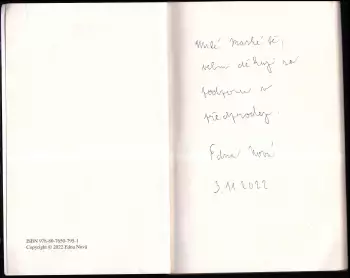 ISBN 978-88-7650-795-1
Copyright © 2022 Edna Nová
Milé
velmi děkuji za
podporu v
předprodeji
Edna Nová
3.11.2022